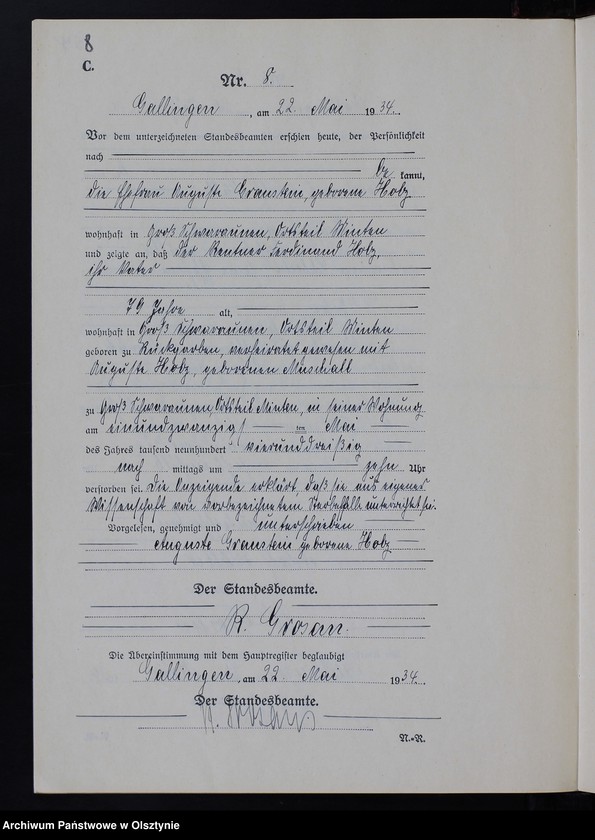 8
C.
Nr. 8.
Gallingen, am 22. Mai 1934.
Vor dem unterzeichneten Standesbeamten erschien heute, der Persönlichkeit
nach
be kannt,
die Ehefrau Auguste Graustein, geborene Holz
wohnhaft in Groß Schwaraunen, Ortsteil Minten
und zeigte an, daß der Rentner Ferdinand Holz,
ihr Vater
79 Jahre alt,
wohnhaft in Groß Schwaraunen, Ortsteil Minten
geboren zu verheiratet gewesen mit
Auguste Holz, geborenen Muschall
zu Groß Schwaraunen, Ortsteil Minten, in seiner Wohnung
am einundzwanzigsten Mai
des Jahres tausend neunhundert vierunddreißig
nach mittags um zehn Uhr
verstorben sei. Die Anzeigende erklärt, daß sie aus eigener
Wissenschaft von vorbezeichnetem Sterbefall unterrichtet sei.
Vorgelesen, genehmigt und unterschrieben
Auguste Graustein geborene Holz
Der Standesbeamte.
R. Grosan.
Die Übereinstimmung mit dem Hauptregister beglaubigt
Gallingen, am 22. Mai 1934.
Der Standesbeamte.
N.-R.
Archiwum Państwowe w Olsztynie